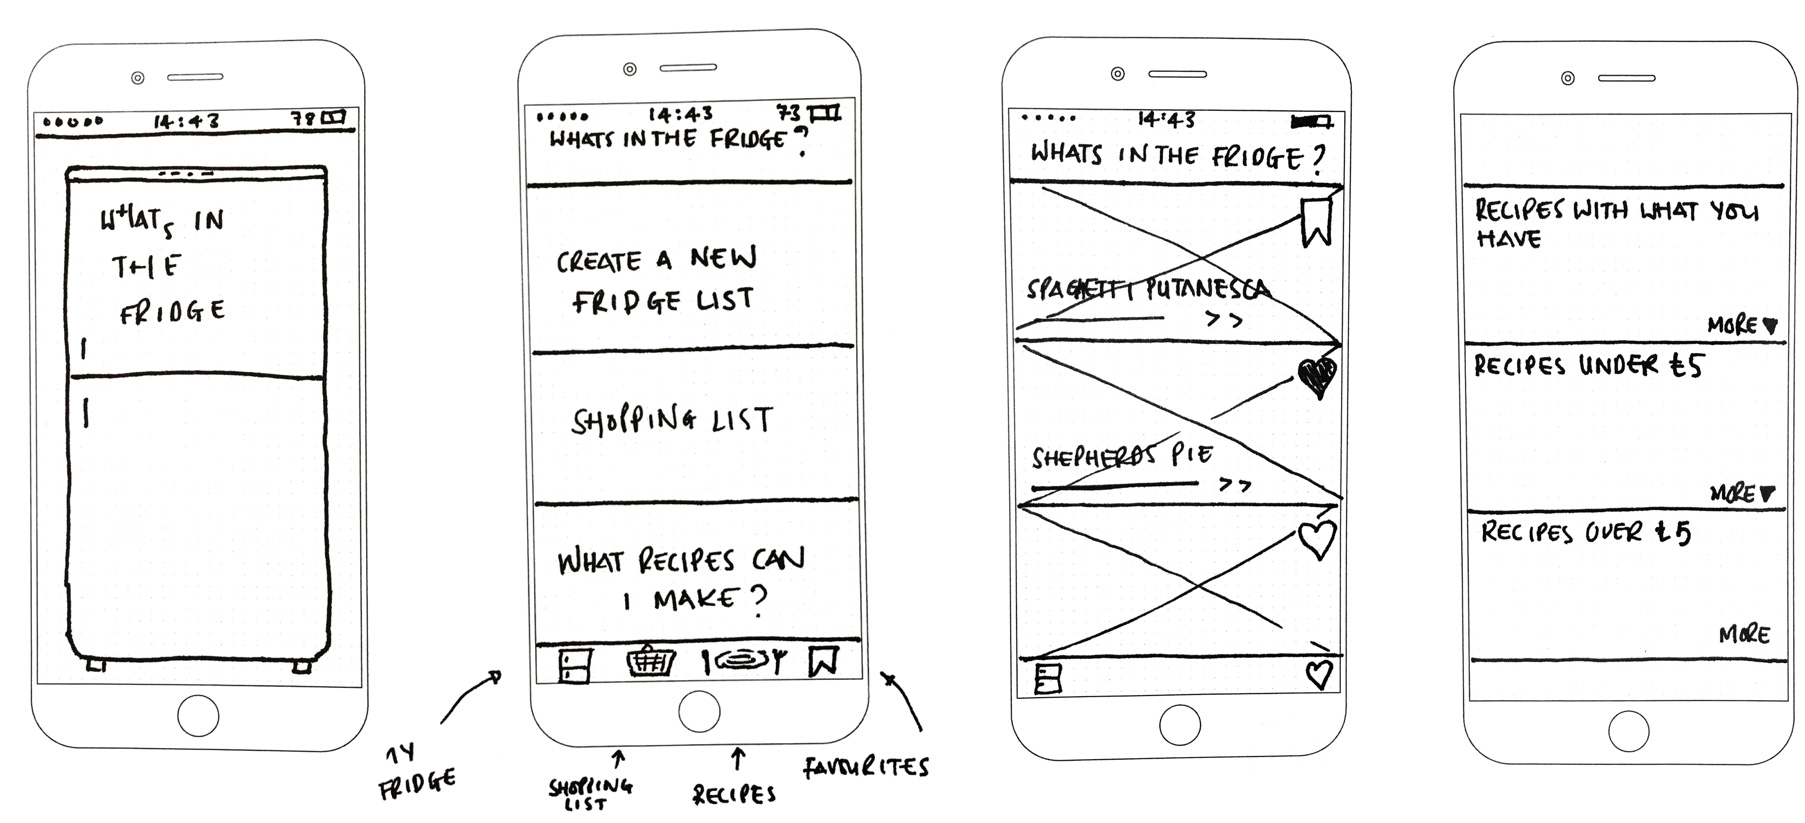 14:43 78
WHATS IN
THE
FRIDGE
14:43 73
WHATS IN THE FRIDGE?
CREATE A NEW
FRIDGE LIST
SHOPPING LIST
WHAT RECIPES CAN
I MAKE?
MY
FRIDGE
SHOPPING
LIST
RECIPES
FAVOURITES
14:43
WHATS IN THE FRIDGE?
SPAGHETTI PUTANESCA
>>
SHEPHERDS PIE
>>
RECIPES WITH WHAT YOU
HAVE
MORE
RECIPES UNDER £5
MORE
RECIPES OVER £5
MORE